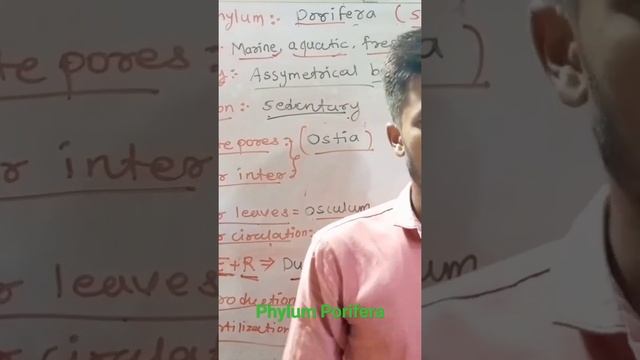 hylum:- Porifera (S
Marine, aquatic, fre
:- Assymetrical b
on:- Sedentary
te pores:- (Ostia)
r inter
r leaves = osculum
r circulation:
E+R ⇒ Du
roduction
rtilization
Phylum Porifera